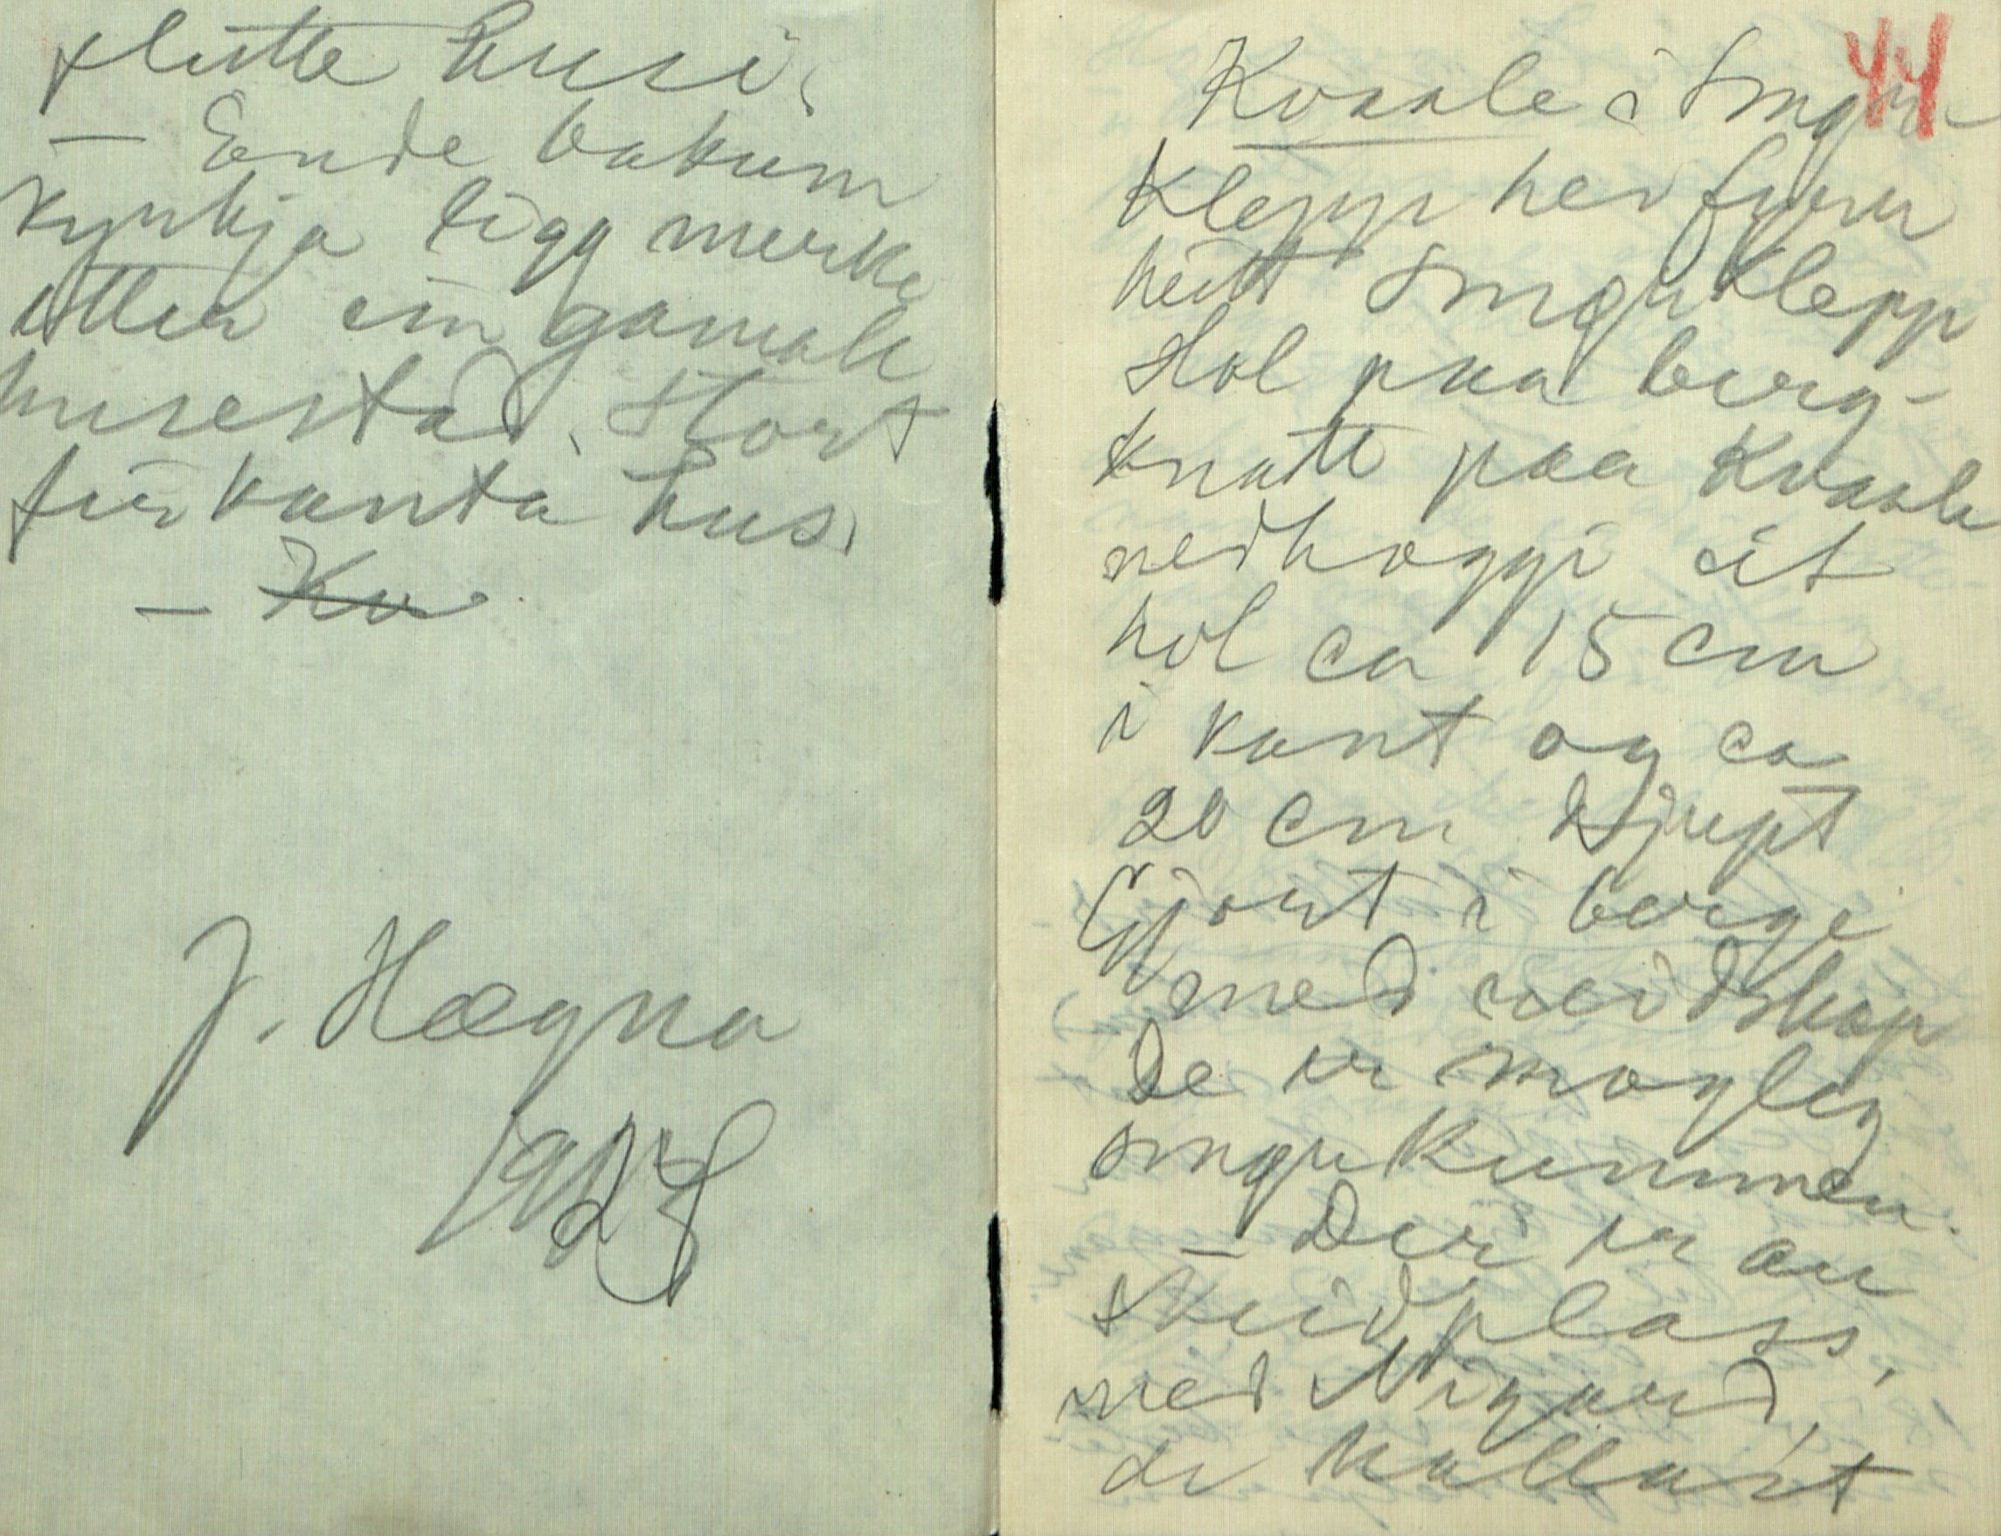 flutte husi.
— Ende bakum
kyrkja ligg merke
etter ein gamall
husestad. Stort
firkanta hus.
— Kv
J. Hægna
1924
44
Kvaale i Smør
klepp hev fyrr
heitt Smørklepp
Hol paa berg-
knatt paa Kvaale
nedhoggi eit
hol ca 15 cm
i kant og ca
20 cm djupt
Gjort i berge
med reidskap
De er mogleg
smørkummen.
— Der er au
skeidplass,
ved Nigard,
de kallast